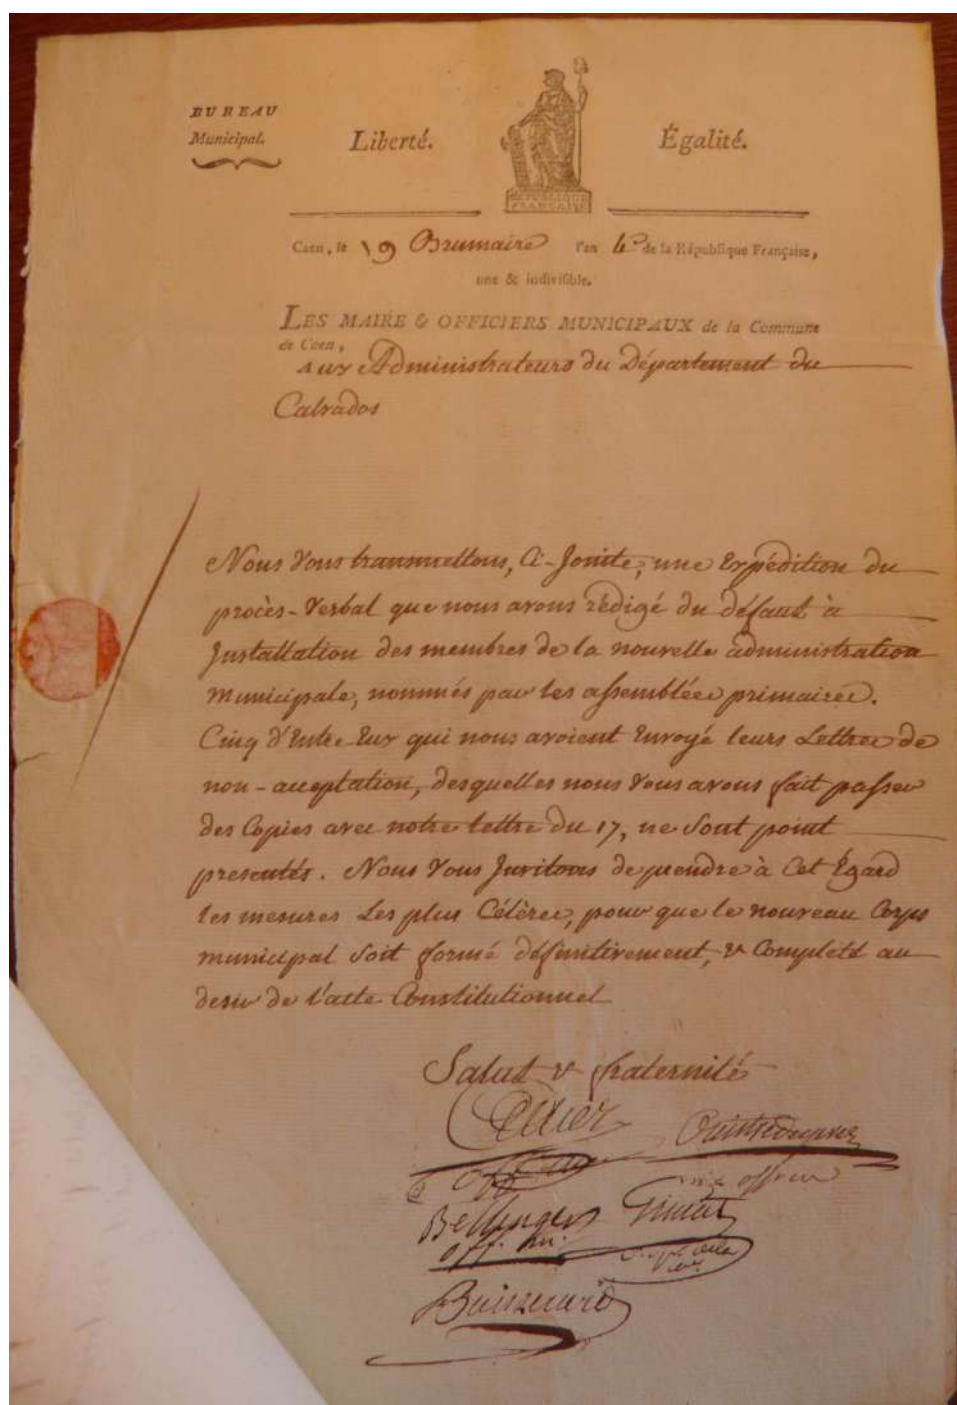 BUREAU
Municipal.
Liberté.
Égalité.
RÉPUBLIQUE
FRANÇAISE
Caen, le 19 Brumaire l'an 4e de la République Française,
une & indivisible.
LES MAIRE & OFFICIERS MUNICIPAUX de la Commune
de Caen,
aux Administrateurs du Département du
Calvados
Nous vous transmettons, Ci-Jointe, une Expédition du
procès-Verbal que nous avons rédigé du défaut à
Installation des membres de la nouvelle administration
municipale, nommés par les assemblées primaires.
Cinq d'Entre Eux qui nous avoient Envoyé leurs Lettres de
non-acceptation, desquelles nous vous avons fait passer
des Copies avec notre lettre du 17, ne Sont point
presentés. Nous Vous Invitons de prendre à Cet Égard
les mesures Les plus Célères, pour que le nouveau Corps
municipal Soit formé définitivement, & Completé au
desir de l'acte Constitutionnel
Salut & fraternité
off.
off. mu.